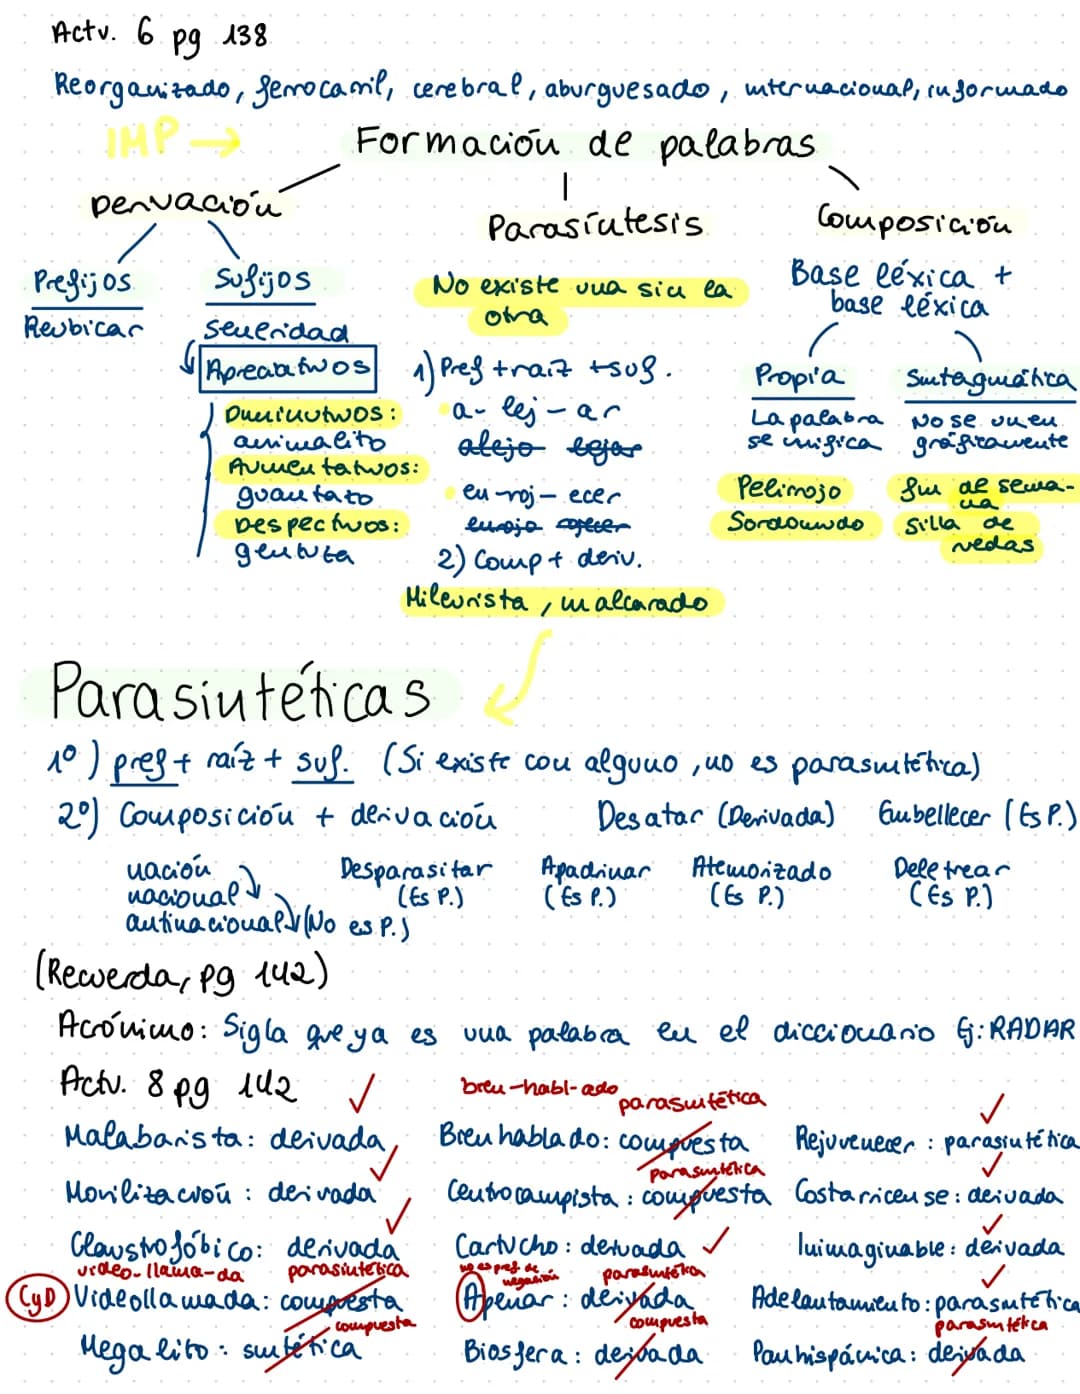 Actv. 6 pg 138
Reorganizado, ferrocarril, cerebral, aburguesado, internacional, informado
IMP → Formación de palabras
Derivación
Parasíntesis
Composición
Prefijos
Reubicar
Sufijos
Seueridad
Apreciativos
Diminutivos:
animalito
Aumentativos:
guantato
Despectivos:
gentuza
No existe una sin la
otra
1) Pref + raíz + suf.
a - lej - ar
alejo lejar
en - roj - ecer
enrojo rojecer
2) Comp + deriv.
Mileurista, malcarado
Base léxica +
base léxica
Propia
La palabra
se unifica
Pelirrojo
Sordomudo
Sintagmática
No se unen
gráficamente
fin de sema-
na
Silla de
ruedas
Parasintéticas
1º) pref + raíz + suf. (Si existe con alguno, no es parasintética)
2º) Composición + derivación Desatar (Derivada) Embellecer (Es P.)
nación
nacional
antinacional (No es P.)
Desparasitar
(Es P.)
Apadrinar
(Es P.)
Atemorizado
(Es P.)
Deletrear
(Es P.)
(Recuerda, pg 142)
Acrónimo: Sigla que ya es una palabra en el diccionario Ej: RADAR
Actv. 8 pg 142
Malabarista: derivada
Movilización: derivada
Claustrofóbico: derivada
video-llama-da parasintética
CyD Videollamada: compuesta
compuesta
Megalito: sintética
bien-habl-ado parasintética
Bienhablado: compuesta
parasintética
Centrocampista: compuesta
Cartucho: derivada
no es pref de
negación
parasintética
Apenar: derivada
compuesta
Biosfera: derivada
Rejuvenecer: parasintética
Costarricense: derivada
Inimaginable: derivada
Adelantamiento: parasintética
parasintética
Panhispánica: derivada